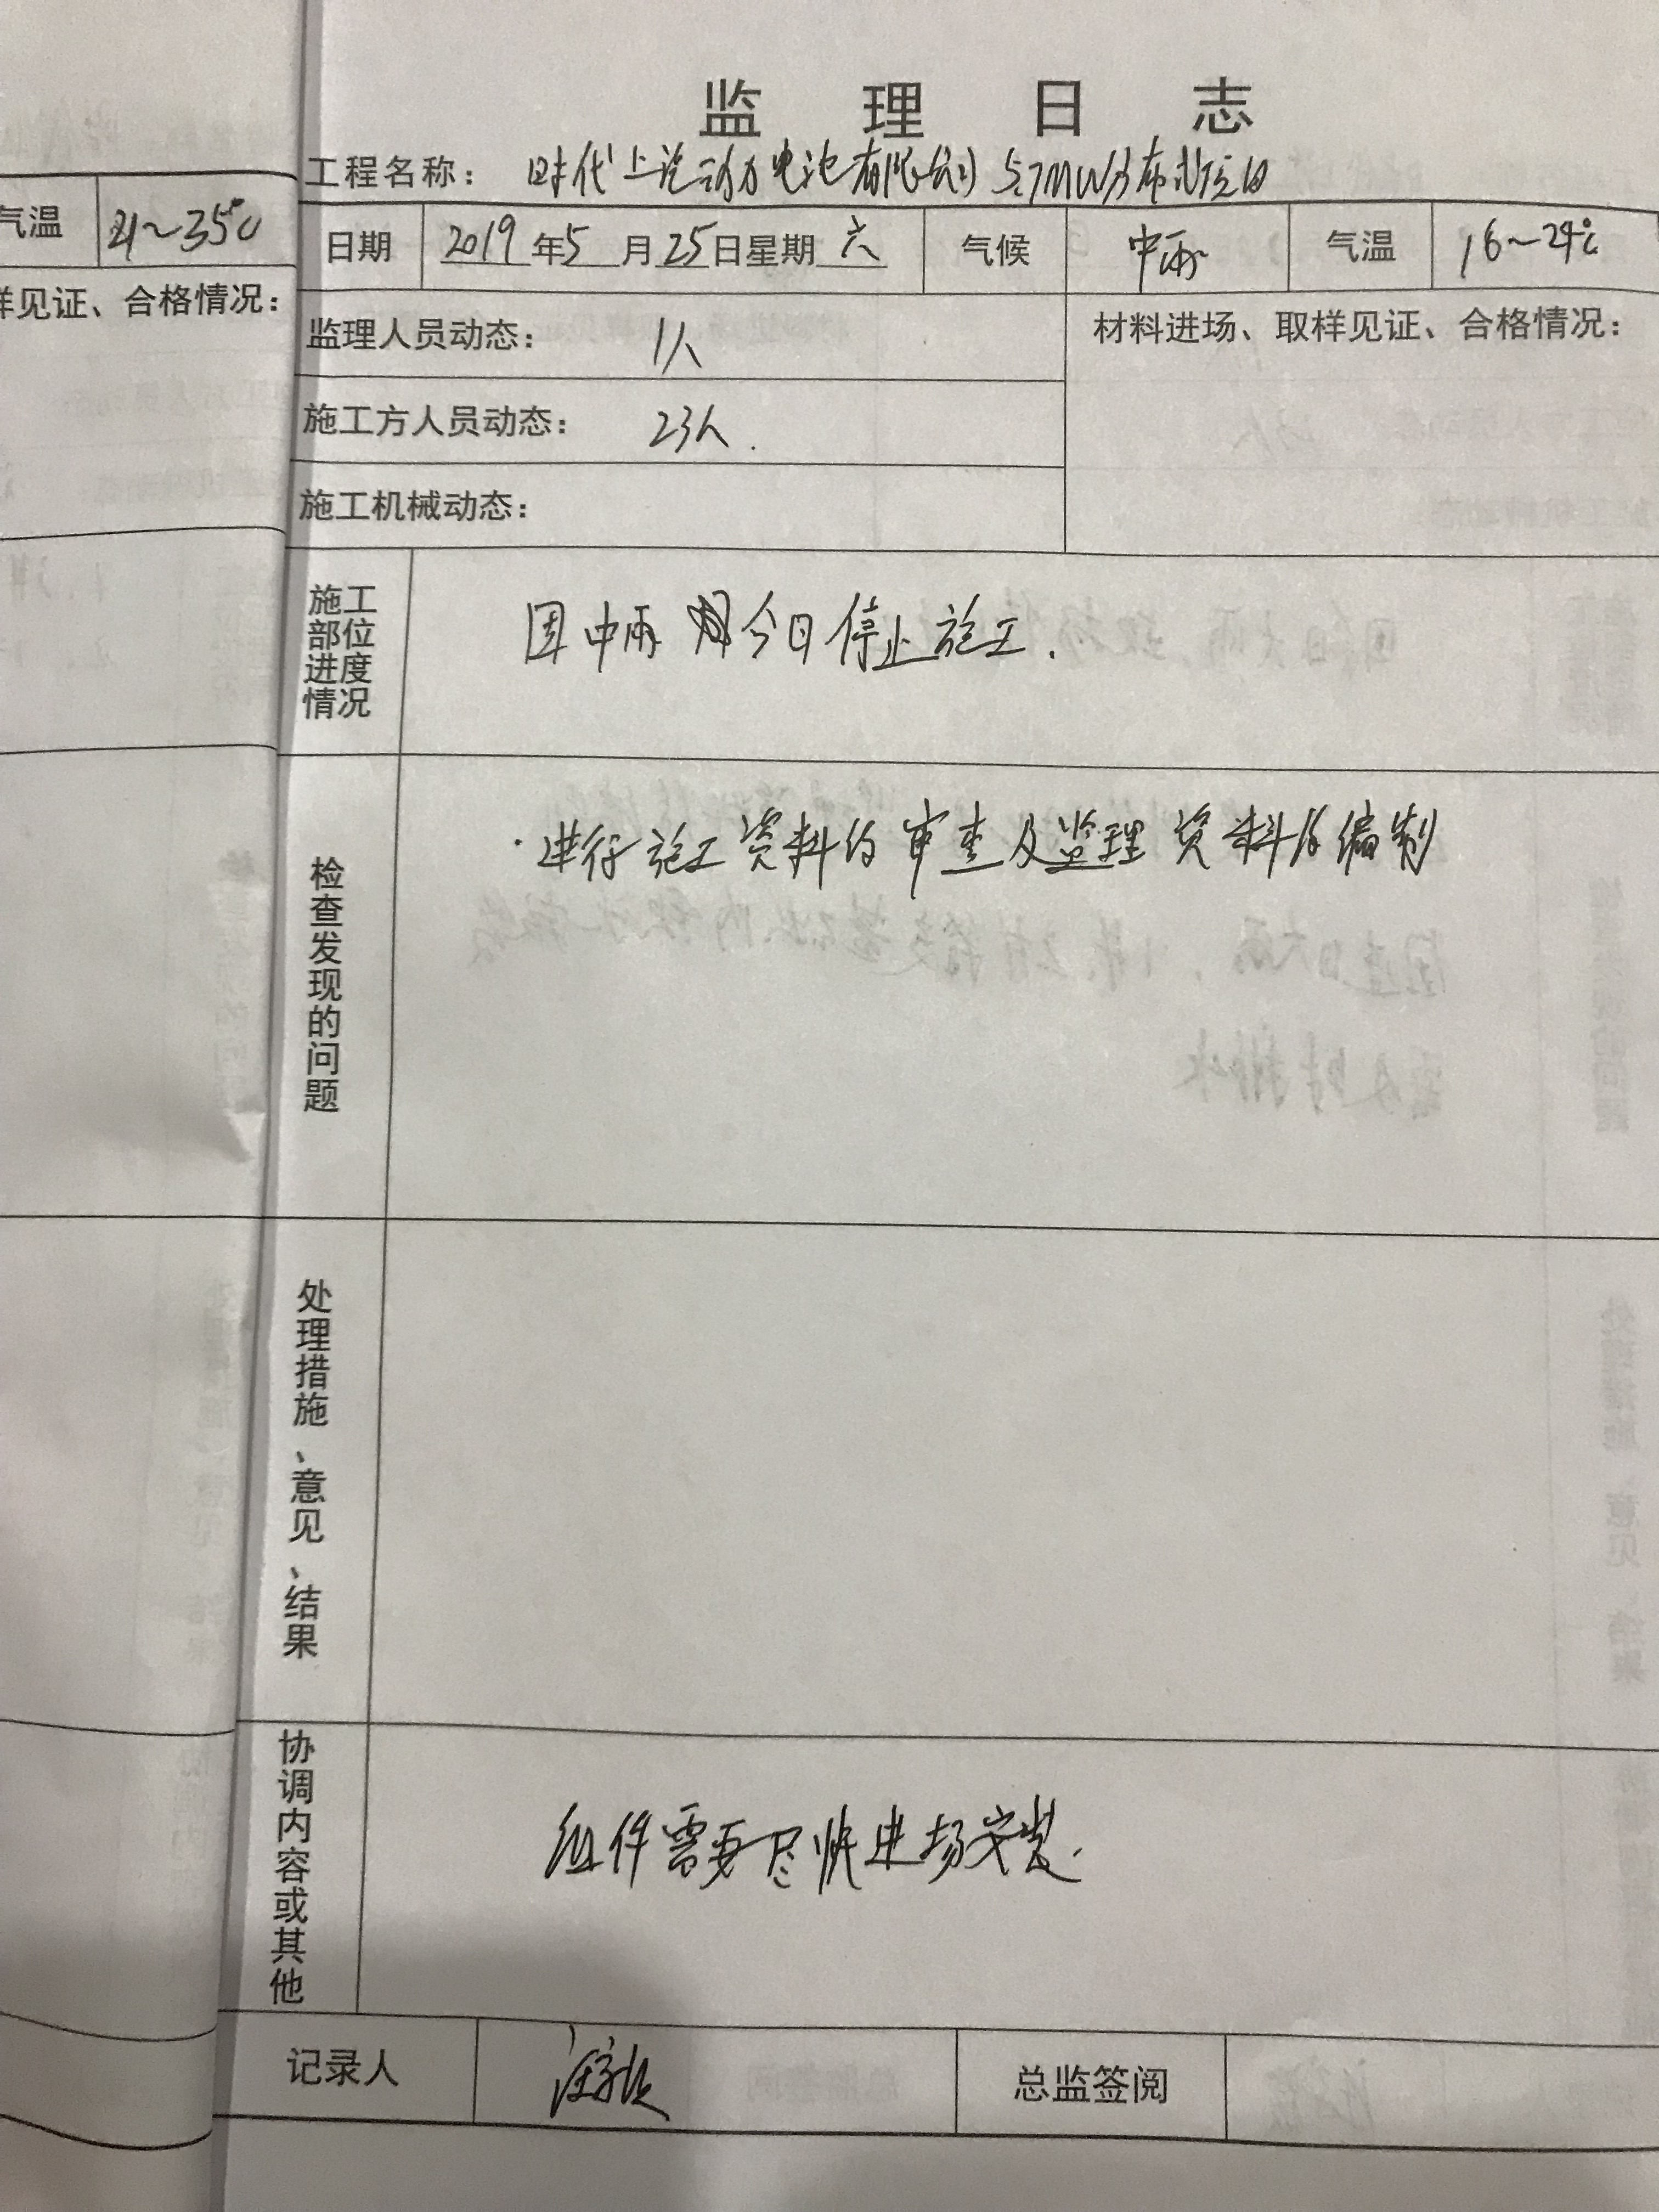 监理日志
工程名称： 时代上汽动力电池有限公司 5.7MW分布式项目
气温 21～35℃
日期 2019年5月25日星期六 气候 中雨 气温 16～24℃
样见证、合格情况：
监理人员动态： 1人
材料进场、取样见证、合格情况：
施工方人员动态： 23人.
施工机械动态：
施工部位进度情况
因中雨 今日停止施工.
检查发现的问题
·进行施工资料的审查及监理资料的编制
处理措施、意见、结果
协调内容或其他
组件需要尽快进场安装.
记录人
总监签阅